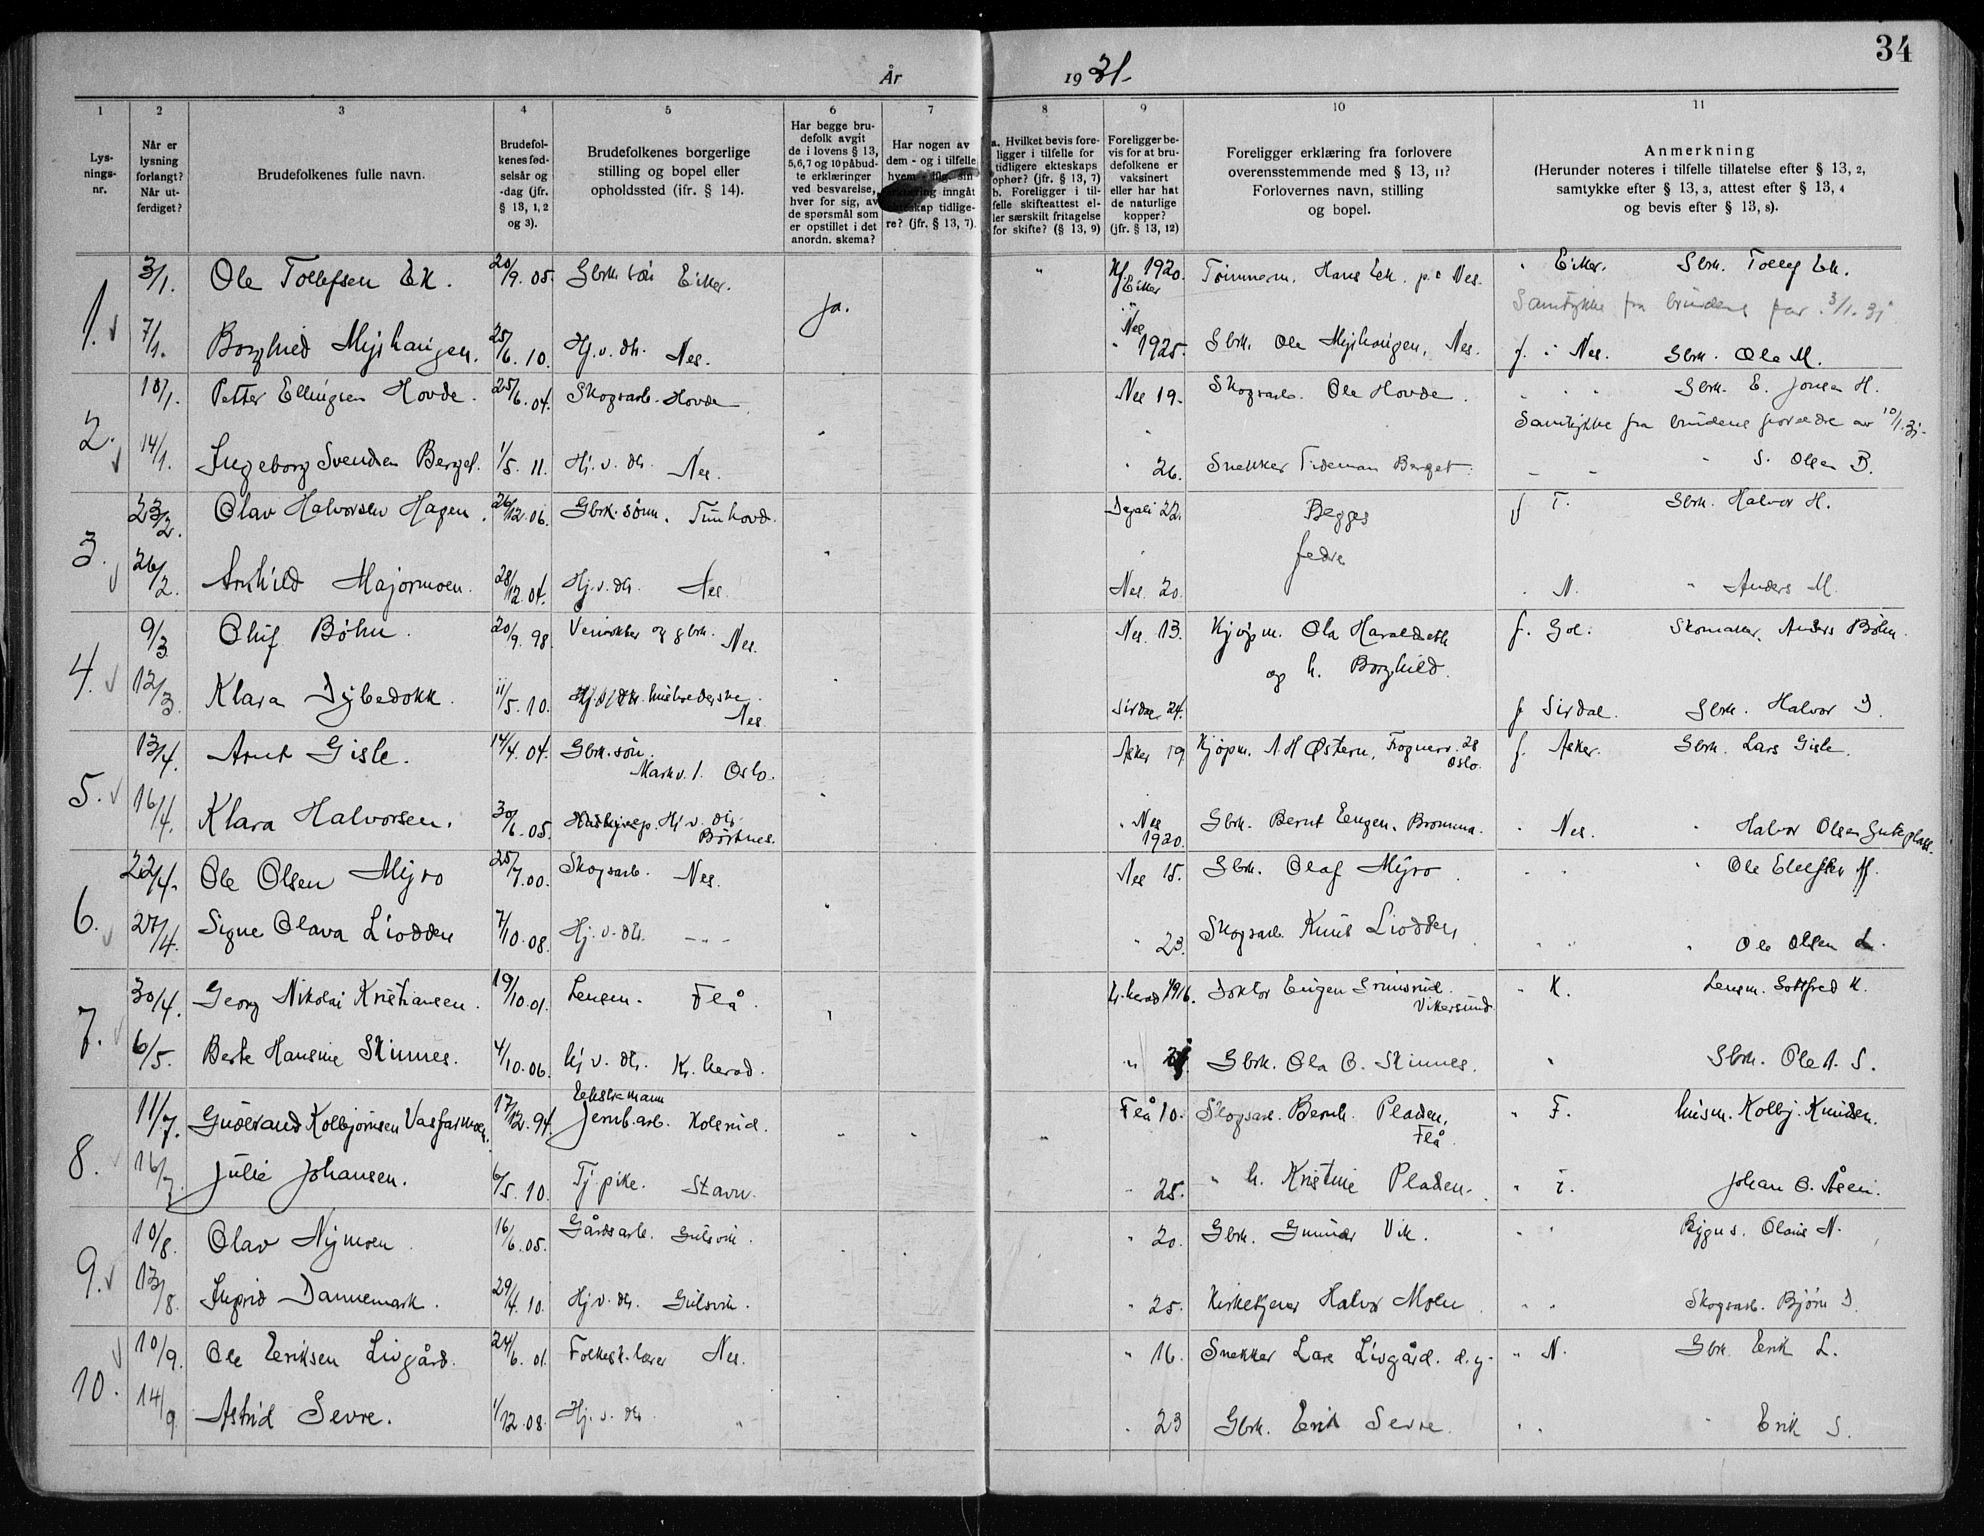 34
År 1931.
1 2 3 4 5 6 7 8 9 10 11
Lys-
nings-
nr.
Når er
lysning
forlangt?
Når ut-
ferdiget?
Brudefolkenes fulle navn.
Brudefol-
kenes fød-
selsår og
-dag (jfr.
§ 13, 1, 2
og 3).
Brudefolkenes borgerlige
stilling og bopel eller
opholdssted (ifr. § 14).
Har begge bru-
defolk avgit
de i lovens § 13,
5,6,7 og 10 påbud-
te erklæringer
ved besvarelse,
hver for sig, av
de spørsmål som
er opstillet i det
anordn. skema?
Har nogen av
dem - og i tilfelle
hvem - sin
inngått
ekteskap tidlige-
re? (jfr. § 13, 7).
a. Hvilket bevis fore-
ligger i tilfelle for
tidligere ekteskaps
ophør? (jfr. § 13, 7)
b. Foreligger i til-
felle skifteattest el-
ler særskilt fritagelse
for skifte? (§ 13, 9)
Foreligger be-
vis for at bru-
defolkene er
vaksinert
eller har hat
de naturlige
kopper?
(jfr. § 13, 12)
Foreligger erklæring fra forlovere
overensstemmende med § 13, 11?
Forlovernes navn, stilling
og bopel.
Anmerkning
(Herunder noteres i tilfelle tillatelse efter § 13, 2,
samtykke efter § 13, 3, attest efter § 13, 4
og bevis efter § 13, 8).
1. 3/1. Ole Tollefsen Ek. 20/9. 05. Gbrk. søn Eiker. ja. " 1920. Eiker Tømmerm. Hans Ek. p.t. Nes. " Eiker. Gbrk. Tollef Ek.
Samtykke fra brudens far 3/1. 31
7/1. Borghild Myrhaugen. 25/6. 10. Hj. v. dtr. Nes. Nes 1925. Gbrk. Ole Myrhaugen, Nes. f. i Nes. Gbrk. Ole M.
2. 10/1. Petter Ellingsen Hovde. 25/6. 04. Skogsarb. Hovde Nes 19. Skogsarb. Ole Hovde. " " Gbrk. E. Jonsen H.
Samtykke fra brudens foreldre av 10/1. 31.
14/1. Ingeborg Svendsen Berget. 1/5. 11. Hj. v. dtr. Nes. " 26. Snekker Tideman Berget. " S. Olsen B.
3. 23/2. Olav Halvorsen Hagen. 26/12. 06. Gbrk. sønn. Tunhovd. Dagali 22. Begges f T. Gbrk. Halvor H.
fedre
26/2. Arnhild Majormoen. 28/12. 04. Hj. v. dtr. Nes. Nes. 20. " N. " Anders M.
4. 9/3 Oluf Bøhn. 20/9. 98. og gbrk. Nes. Nes. 13. Kjøpm. Ola Haraldseth f. Gol. Skomaker. Anders Bøhn.
og h. Borghild.
12/3. Klara Dybedokk. 11/5. 10. husholderske. Nes. Sirdal 24. f Sirdal. Gbrk. Halvor D.
5. 13/4. Arnt Gisle. 14/4. 04. Gbrk. søn. Markv. 1. Oslo. Asker 19 Kjøpm. A. H. Østern, Frognerv. 28 Oslo. f. Asker. Gbrk. Lars Gisle.
16/4. Klara Halvorsen. 30/6. 05. Hj. v. dtr. Børtnes. " Nes 1920. Gbrk. Bernt Eengen. Bromma. " Nes. " Halvor Olsen Guteplass.
6. 22/4. Ole Olsen Myro 25/7. 00. Skogsarb. Nes. Nes 15. Gbrk. Olaf Myro. " " " Ole M.
27/4. Signe Olava Liodden 7/10. 08. Hj. v. dtr. - - - " 23. Skogsarb. Knut Liodden. " " " Ole Olsen L.
7. 30/4. Georg Nikolai Kristiansen. 19/10. 01. Lensm. Flå. Kr. herad 1916. Doktor Eugen Grimsrud. Vikersund. " K. Lensm. Gottfred K.
6/5. Berte Hansine Skinnes. 4/10. 06. hj. v. dtr. Kr. herad. " Gbrk. Ola O. Skinnes. " Gbrk. Ole A. S.
8. 11/7. Gulbrand Kolbjørnsen Vasfarmoen. 17/12. 94. Enkemann Jernb. arb. Kolsrud. " " " Flå 10. Skogsarb. Bernh. Pladen, Flå. " F. husm. Kolbj. Knudsen.
16/7. Julie Johansen. 6/5. 10. Tj. pike. Stavn. " 25. " h. Kristine Pladen. " Johan O. Åsen.
9. 10/8. Olav Nymoen. 16/6. 05. Gårdsarb. Gulsvik. " 20. Gbrk. Gunnar Vik. " " Bygns. Olaus N.
13/8. Ingrid Dannemark. 29/4. 10. Hj. v. dtr. Gulsvik. " 25. Kirketjener Halvor Moen " " Skogsarb. Bjørn D.
10. 10/9. Ole Eriksen Livgård. 24/6. 01. Folkesk. lærer Nes. " 16. Snekker Lars Livgård. d. y. " N. Gbrk. Erik L.
14/9 Astrid Sevre. 1/12. 08. Hj. v. dtr. " " 23 Gbrk. Erik Sevre. " " " Erik S.